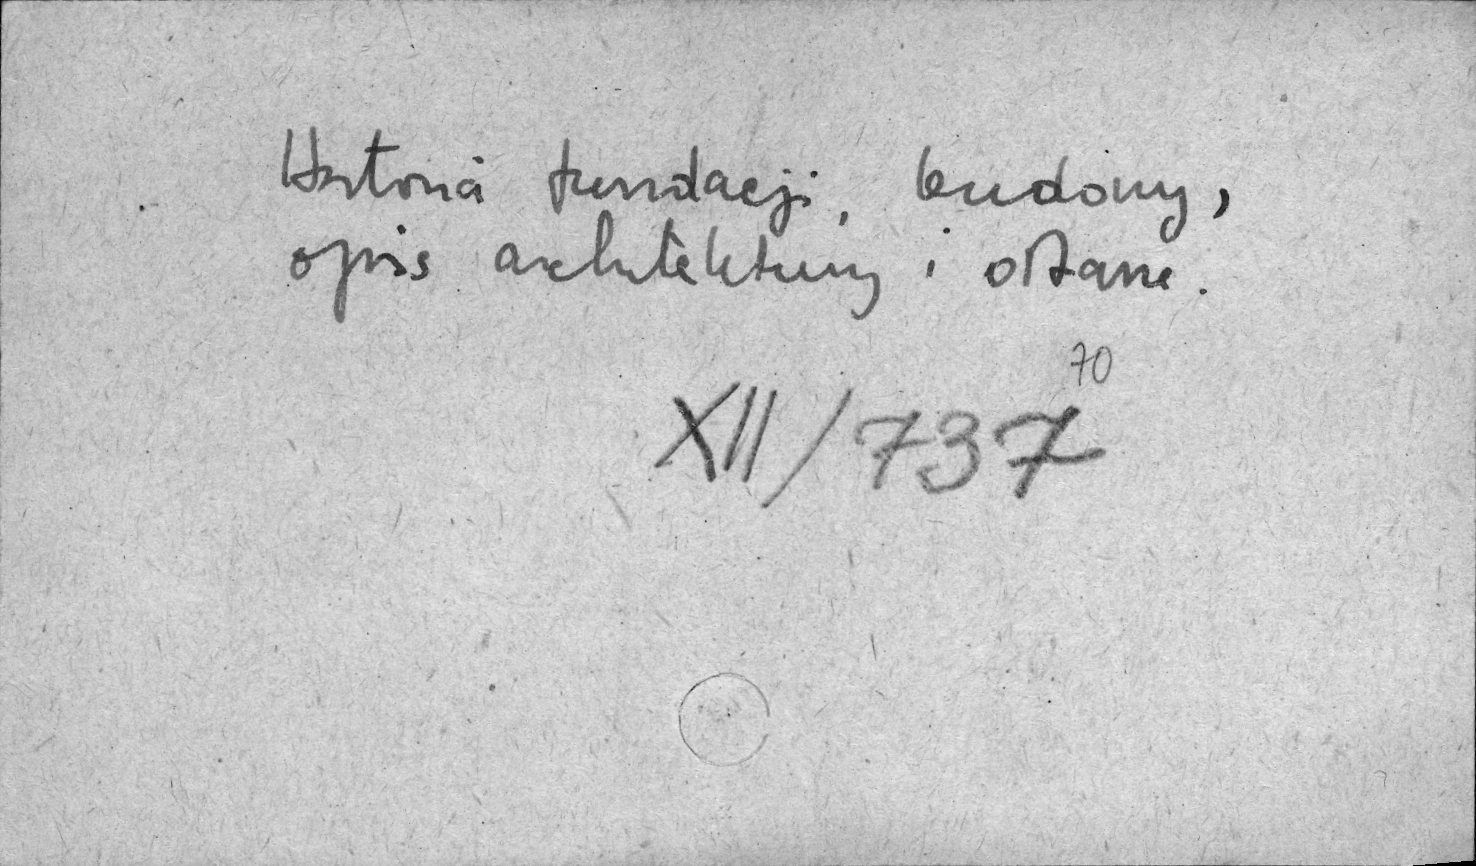 Historia fundacji, budowy,
opis architektury i ołtarze.
70
XII/737